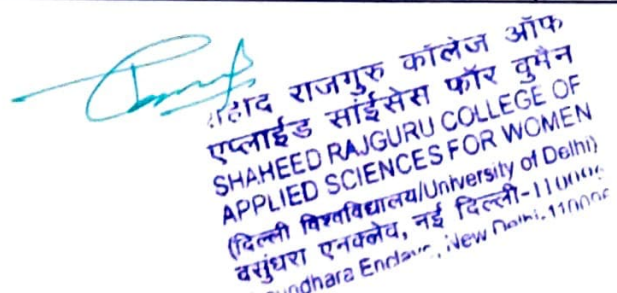 शहीद राजगुरु कॉलेज ऑफ
एप्लाईड साईसेस फॉर वुमैन
SHAHEED RAJGURU COLLEGE OF
APPLIED SCIENCES FOR WOMEN
(दिल्ली विश्वविद्यालय/University of Delhi)
वसुंधरा एनक्लेव, नई दिल्ली-110096
Enclave, New Delhi-110096